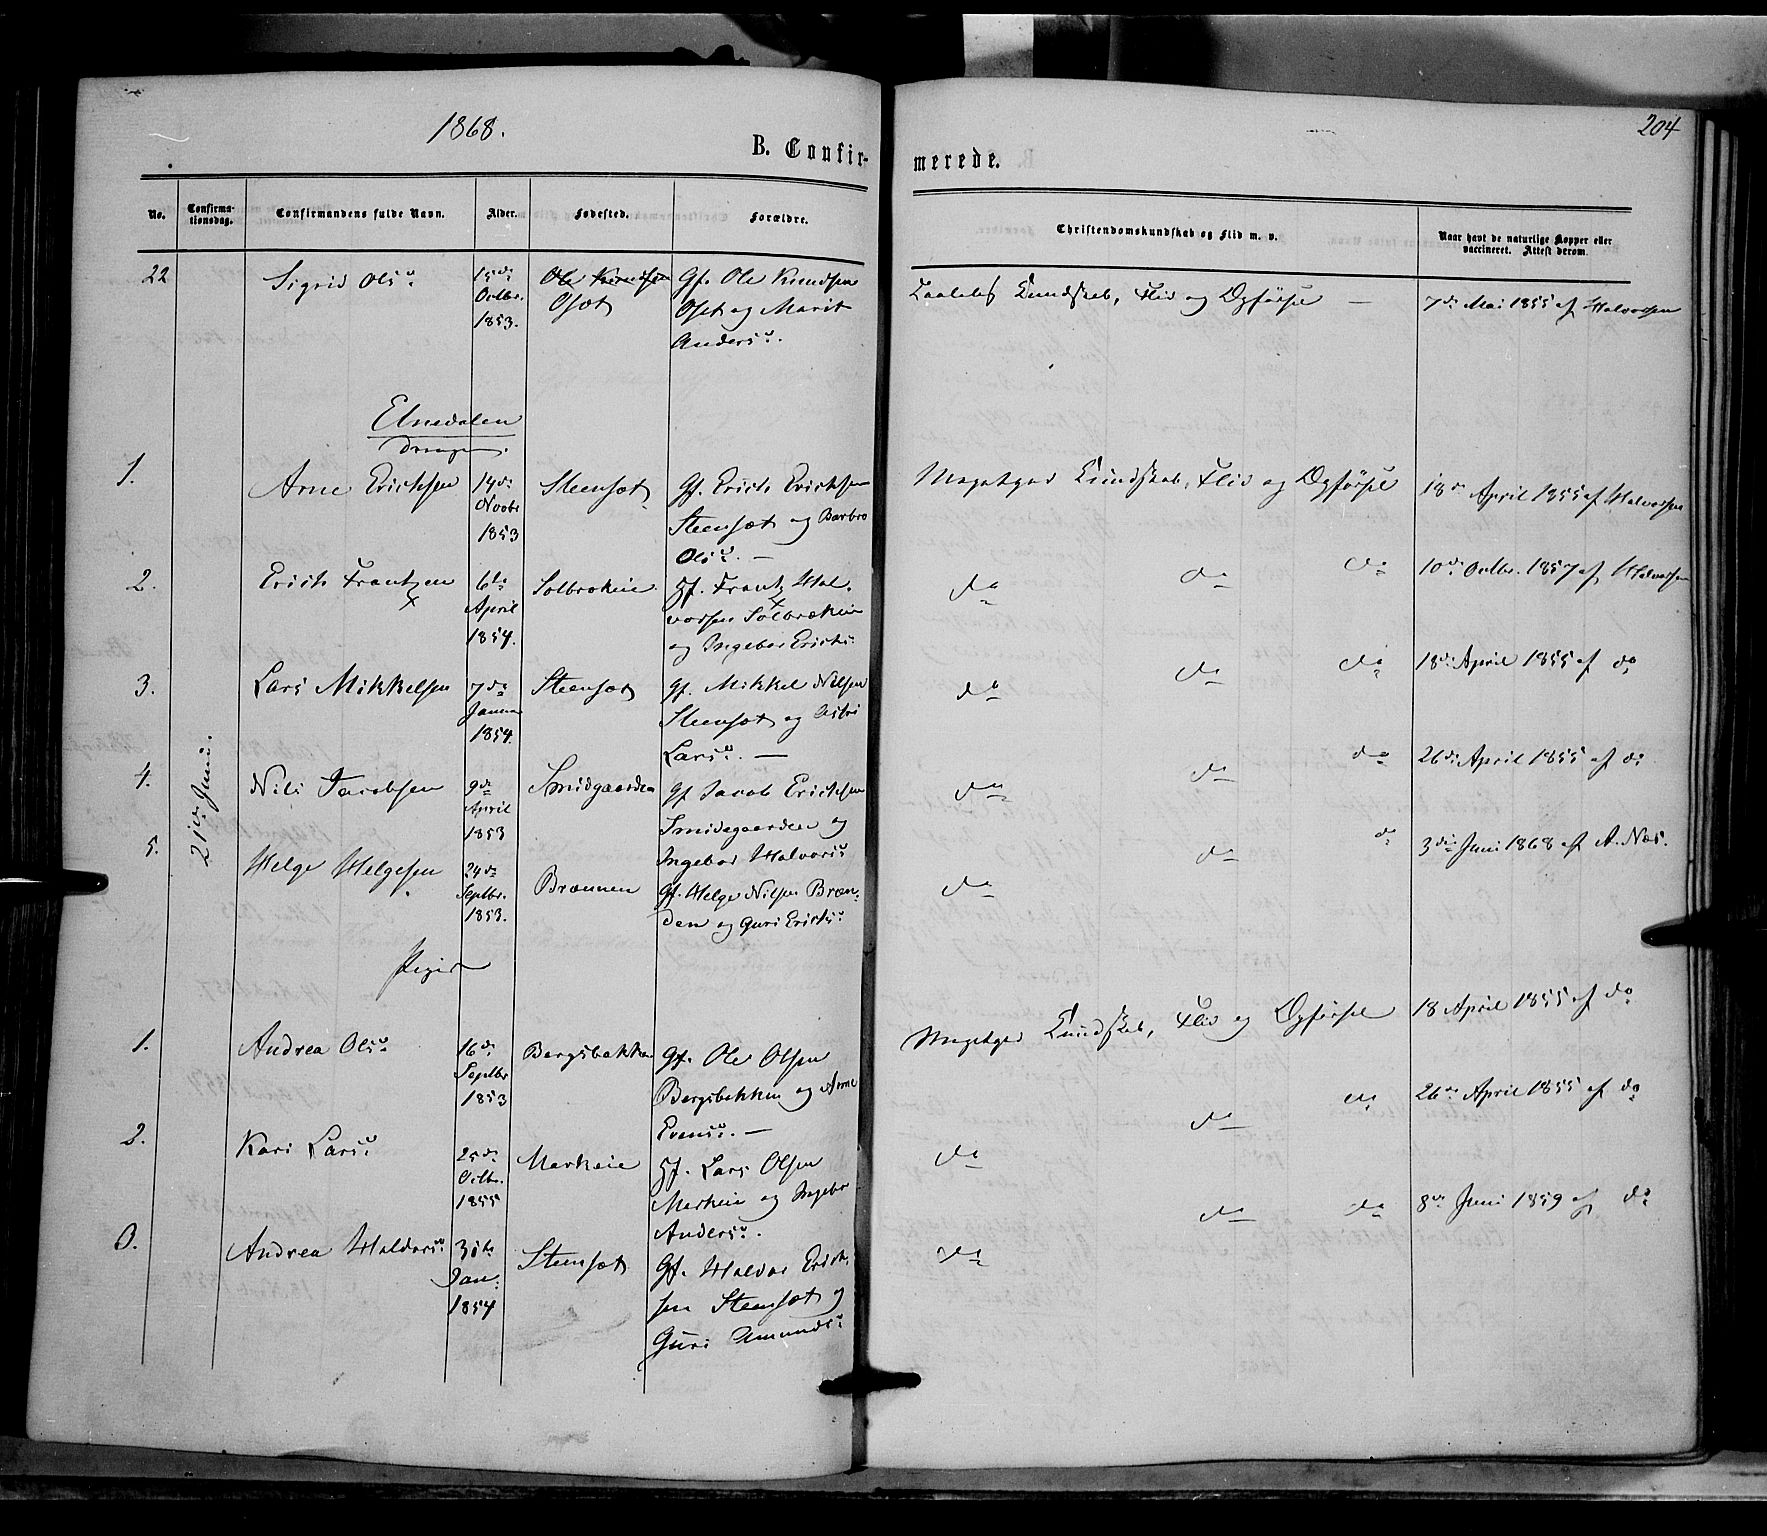 1868.
204
B. Confir-
merede.
No.
Confirma-
tionsdag.
Confirmandens fulde Navn.
Alder.
Fødested.
Forældre.
Christendomskundskab og Flid m. v.
Naar havt de naturlige Kopper eller
vaccineret. Attest derom.
22
Sigrid Olsd.
15de
Octbr.
1853.
Ole Knudsen
Osæt
Gf. Ole Knudsen
Oset og Marit
Andersd.
Taalelig Kundskab, Flid og Opførsel —
7de Mai 1855 af Halvorsen
Etnedalen
Drenge.
1.
Arne Erichsen
14de
Novbr
1853
Steensæt
Gf. Erich Erichsen
Steensæt og Barbro
Olsd. —
Megetgod Kundskab, Flid og Opførsel
18de April 1855 af Halvorsen
2.
Erich Frantzen
6te
April
1854.
Solbrekeie
Hf. Frantz Hal-
vorsen Solbrækeie
og Ingebor Erichs:
do do do
10de Octbr. 1857 af Halvorsen
3.
Lars Mikkelsen
7de
Januar
1854.
Steensæt
Gf. Mikkel Nilsen
Steensæt og Astri
Larsd. —
do do do
18de April 1855 af do
21de Juni.
4.
Nils Jacobsen
9de
April
1853
Smidgaarden
Gf Jacob Erichsen
Smidegaarden og
Ingebor Halvorsd
do do do
26de April 1855 af do
5.
Helge Helgesen
24de
Septbr.
1853.
Brænnen
Gf. Helge Nilsen Bræn-
den og Guri Erichsd
do do do
3die Juni 1868 af A. Næs.
Piger
1.
Andrea Olsd
16de
Septbr
1853
Bergsbakken
Gf. Ole Olsen
Bergsbakken og Arne
Evensd. —
Megetgod Kundskab, Flid og Opførsel
18 April 1855 af do
2.
Kari Larsd
25de
Octbr.
1855
Markeie
Hf. Lars Olsen
Markeie og Ingebor
Andersd.
do do do
26de April 1855 af do
3.
Andrea Haldorsd
31te
Jan:
1854
Steensæt
Gf. Halvor Erich-
sen Steensæt og
Guri Amundsd
do do do
8de Juni 1859 af do